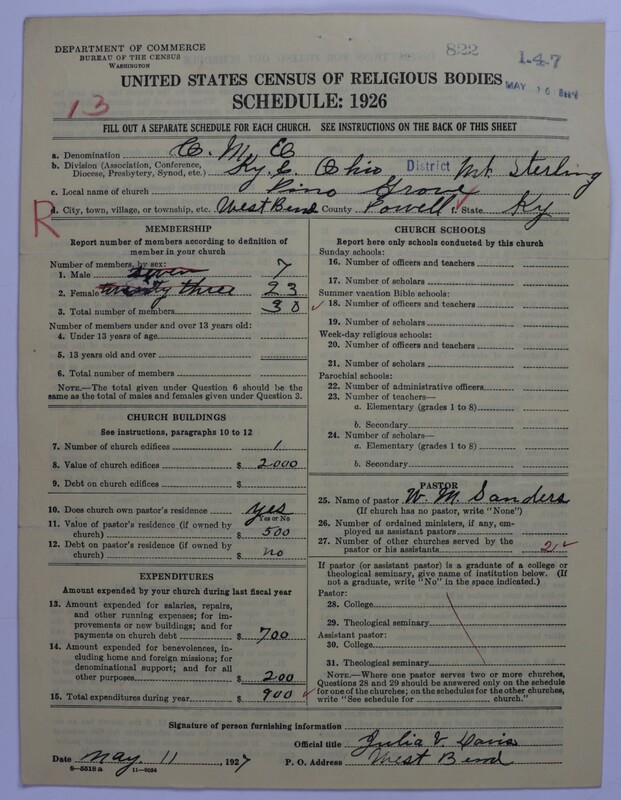 DEPARTMENT OF COMMERCE
BUREAU OF THE CENSUS
WASHINGTON
822
1-4-7
MAY 16
13
UNITED STATES CENSUS OF RELIGIOUS BODIES
SCHEDULE: 1926
FILL OUT A SEPARATE SCHEDULE FOR EACH CHURCH. SEE INSTRUCTIONS ON THE BACK OF THIS SHEET
a. Denomination C. M. E
b. Division (Association, Conference, Diocese, Presbytery, Synod, etc.) Ky. & Ohio District Mt. Sterling
c. Local name of church Pine Grove
d. City, town, village, or township, etc. West Bend County Powell State Ky
R
MEMBERSHIP
Report number of members according to definition of
member in your church
Number of members, by sex:
1. Male seven 7
2. Female twenty three 23
3. Total number of members 30
Number of members under and over 13 years old:
4. Under 13 years of age
5. 13 years old and over
6. Total number of members
NOTE.—The total given under Question 6 should be
same as the total of males and females given under Question 3.
CHURCH BUILDINGS
See instructions, paragraphs 10 to 12
7. Number of church edifices 1
8. Value of church edifices $ 2000
9. Debt on church edifices $
10. Does church own pastor's residence? yes
Yes or No
11. Value of pastor's residence (if owned by
church) $ 500
12. Debt on pastor's residence (if owned by
church) $ no
EXPENDITURES
Amount expended by your church during last fiscal year
13. Amount expended for salaries, repairs,
and other running expenses; for im-
provements or new buildings; and for
payments on church debt $ 700
14. Amount expended for benevolences, in-
cluding home and foreign missions; for
denominational support; and for all
other purposes $ 200
15. Total expenditures during year $ 900
CHURCH SCHOOLS
Report here only schools conducted by this church
Sunday schools:
16. Number of officers and teachers
17. Number of scholars
Summer vacation Bible schools:
18. Number of officers and teachers
19. Number of scholars
Week-day religious schools:
20. Number of officers and teachers
21. Number of scholars
Parochial schools:
22. Number of administrative officers
23. Number of teachers—
a. Elementary (grades 1 to 8)
b. Secondary
24. Number of scholars—
a. Elementary (grades 1 to 8)
b. Secondary
PASTOR
25. Name of pastor W. M. Sanders
(If church has no pastor, write "None")
26. Number of ordained ministers, if any, em-
ployed as assistant pastors
27. Number of other churches served by the
pastor or his assistants 2
If pastor (or assistant pastor) is a graduate of a college or
theological seminary, give name of institution below. (If
not a graduate, write "No" in the space indicated.)
Pastor:
28. College
29. Theological seminary
Assistant pastor:
30. College
31. Theological seminary
NOTE.—Where one pastor serves two or more churches,
Questions 28 and 29 should be answered only on the schedule
for one of the churches; on the schedules for the other churches,
write "See schedule for church."
Signature of person furnishing information
Official title Julia V. Davis
Date May. 11, 1927 P. O. Address West Bend
8-5518 a 11-9034